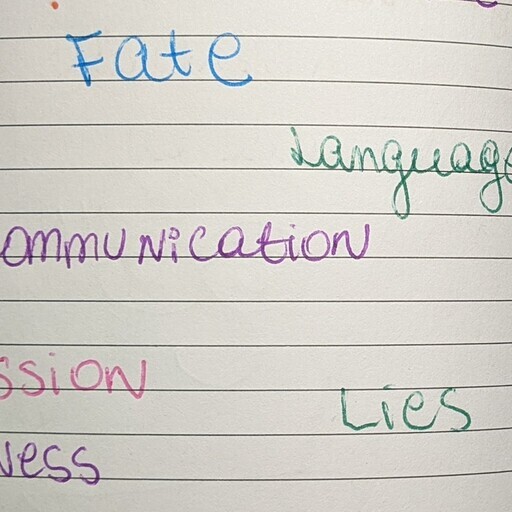 Fate
Language
ommunication
ssion
Lies
ness